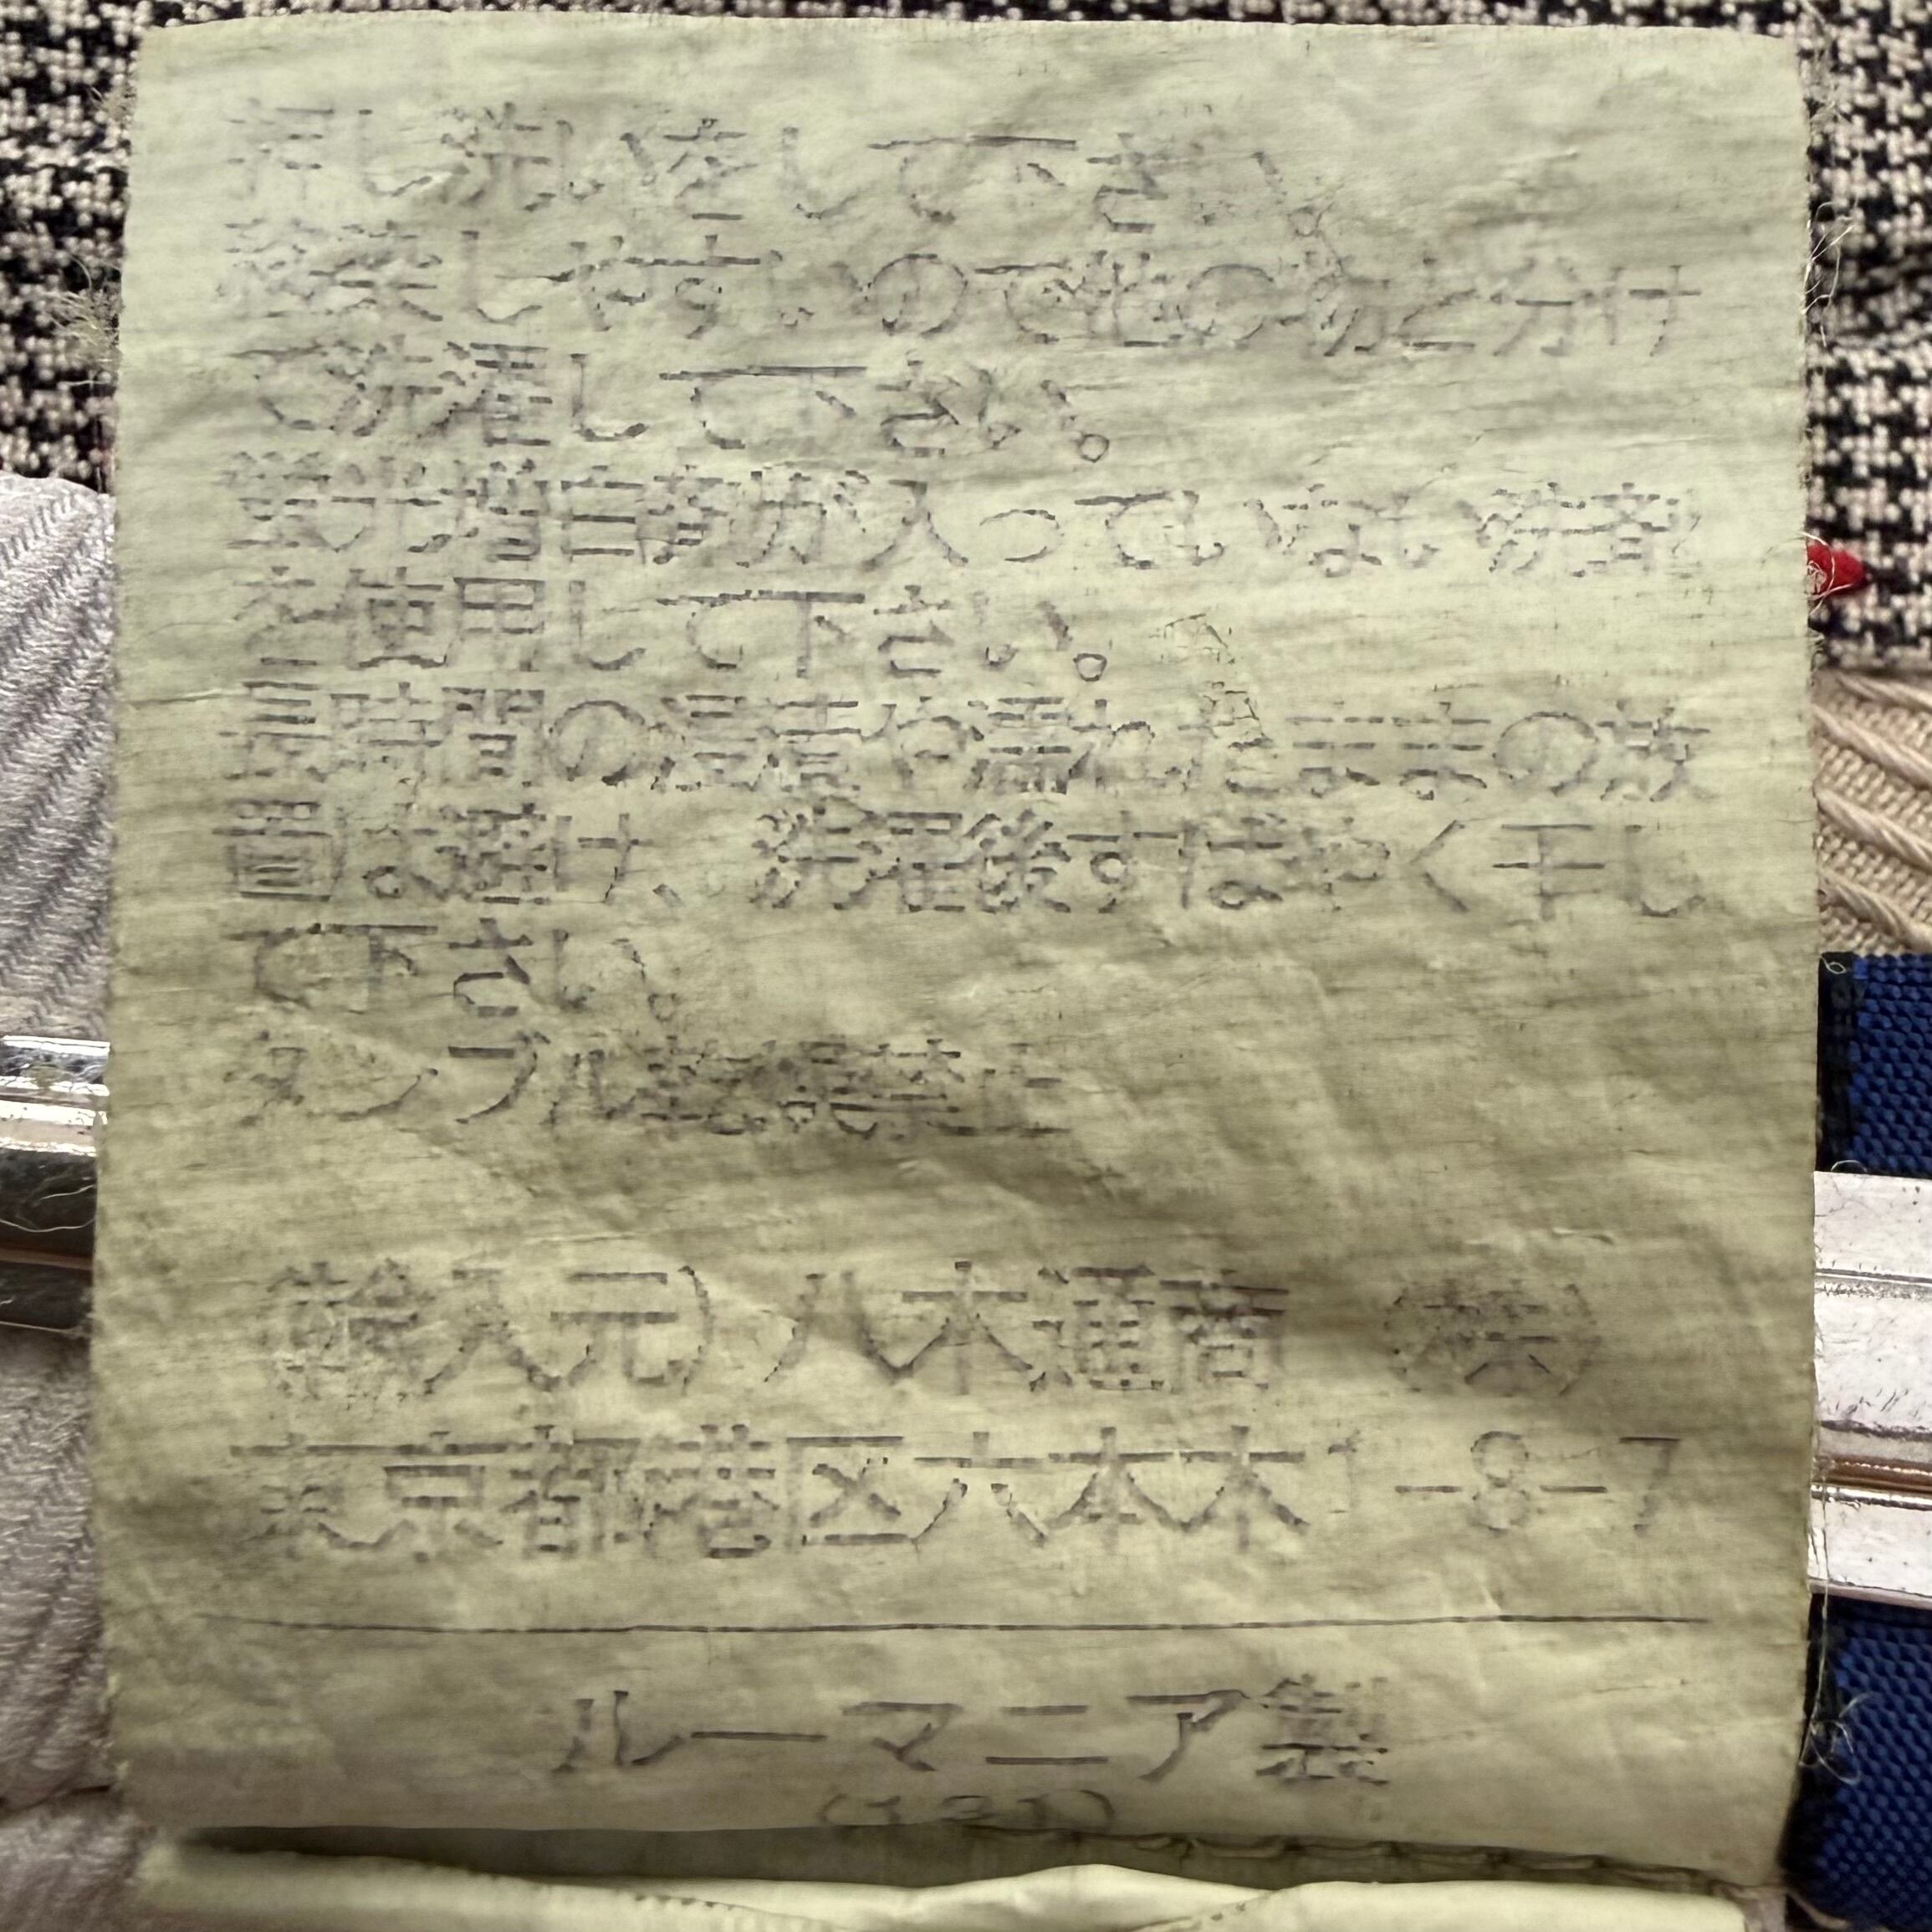 押し洗いをして下さい。
移染しやすいので他の物と分け
て洗濯して下さい。
蛍光増白剤が入っていない洗剤
を使用して下さい。
長時間の浸漬や濡れたままの放
置は避け、洗濯後すばやく干し
て下さい。
タンブル乾燥禁止
(輸入元)八木通商 (株)
東京都港区六本木1-8-7
ルーマニア製